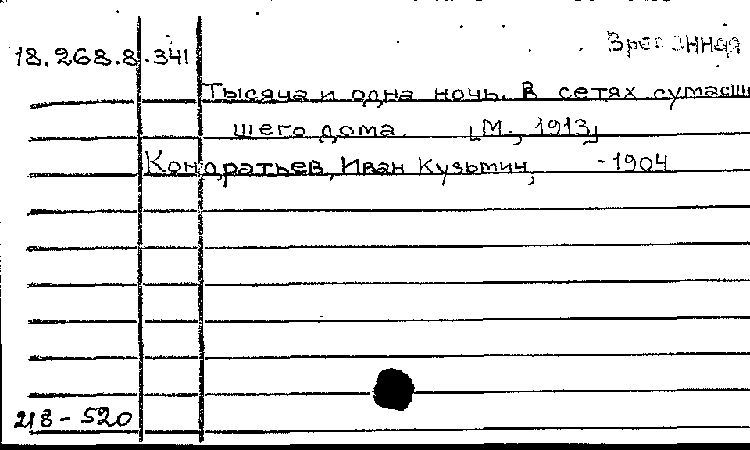 18.268.8.341
Тысяча и одна ночь. В сетях сумасш
шего дома. [М., 1913]
Кондратьев, Иван Кузьмич, -1904
218-520